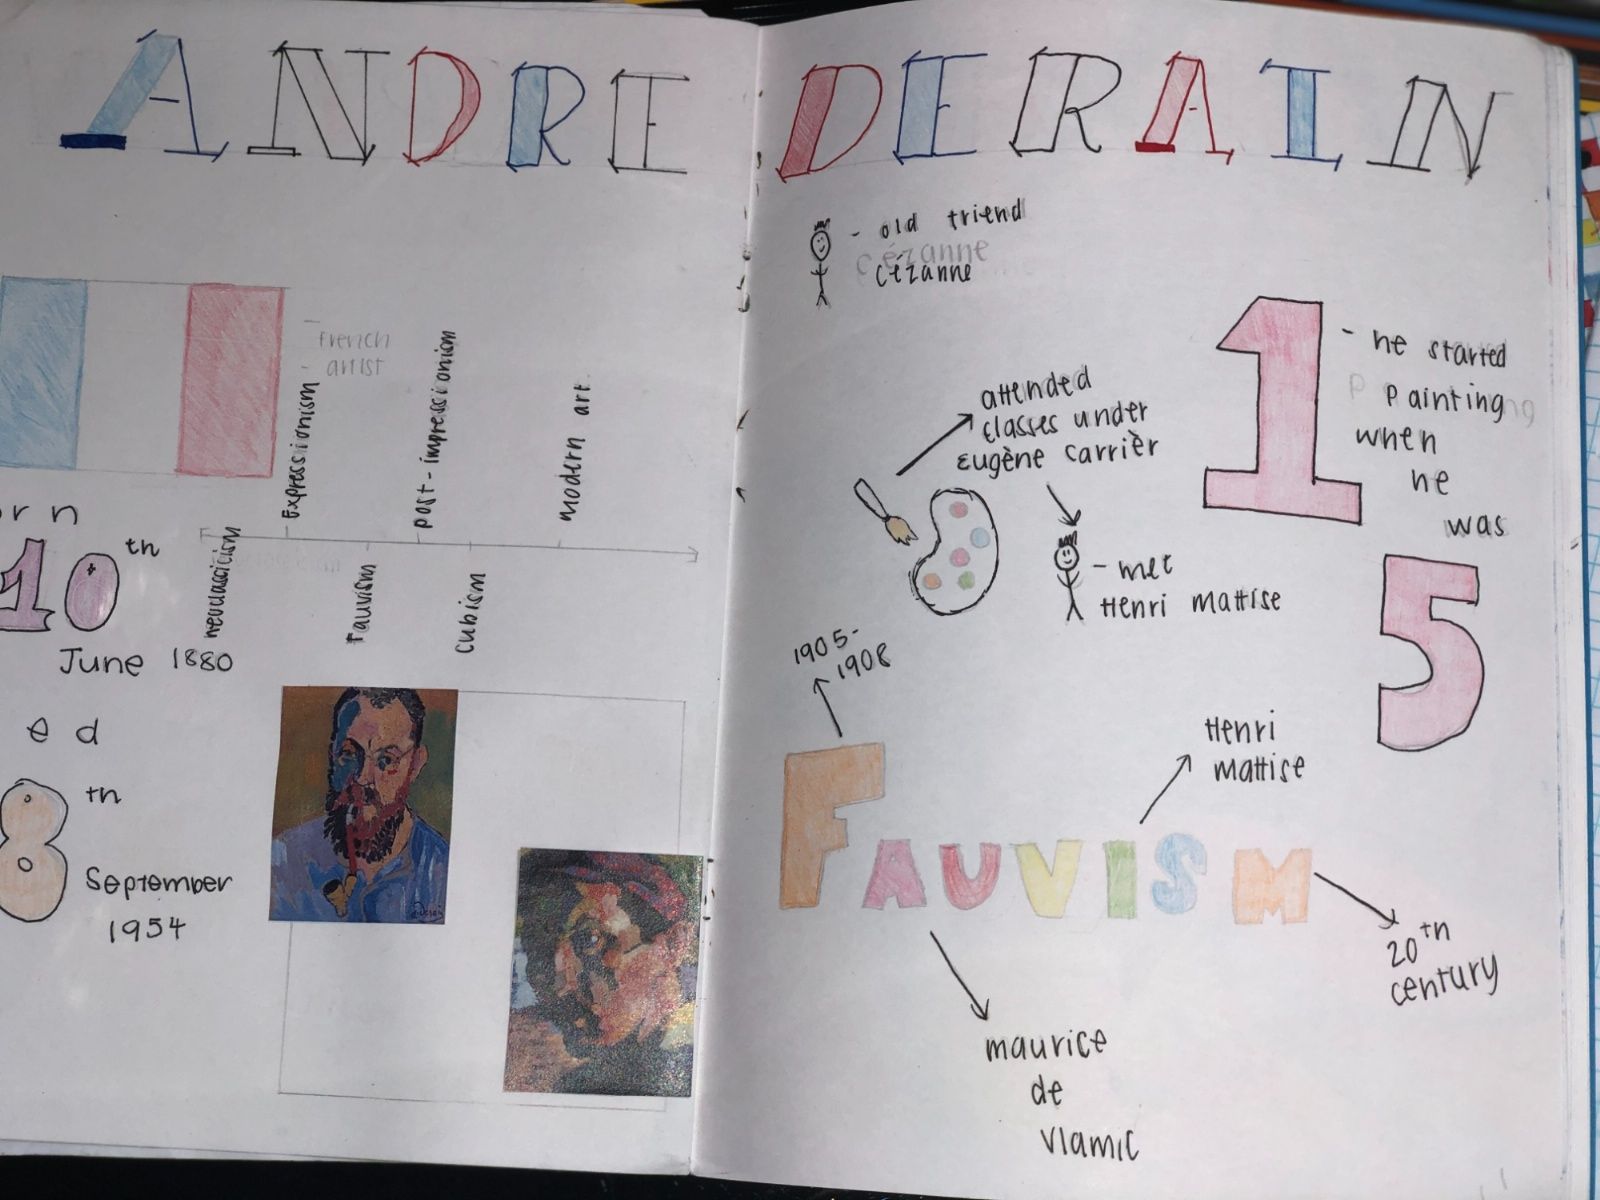 ANDRE DERAIN
French
artist
Expressionism
post-impressionism
modern art
neoclasscicism
Fauvism
cubism
orn
10th
June 1880
ed
8th
September
1954
- old friend
cézanne
attended
classes under
Eugène carrièr
- met
Henri mattise
1
- he started
painting
when
he
was
5
1905-
1908
FAUVISM
Henri
mattise
20th
century
maurice
de
vlamic